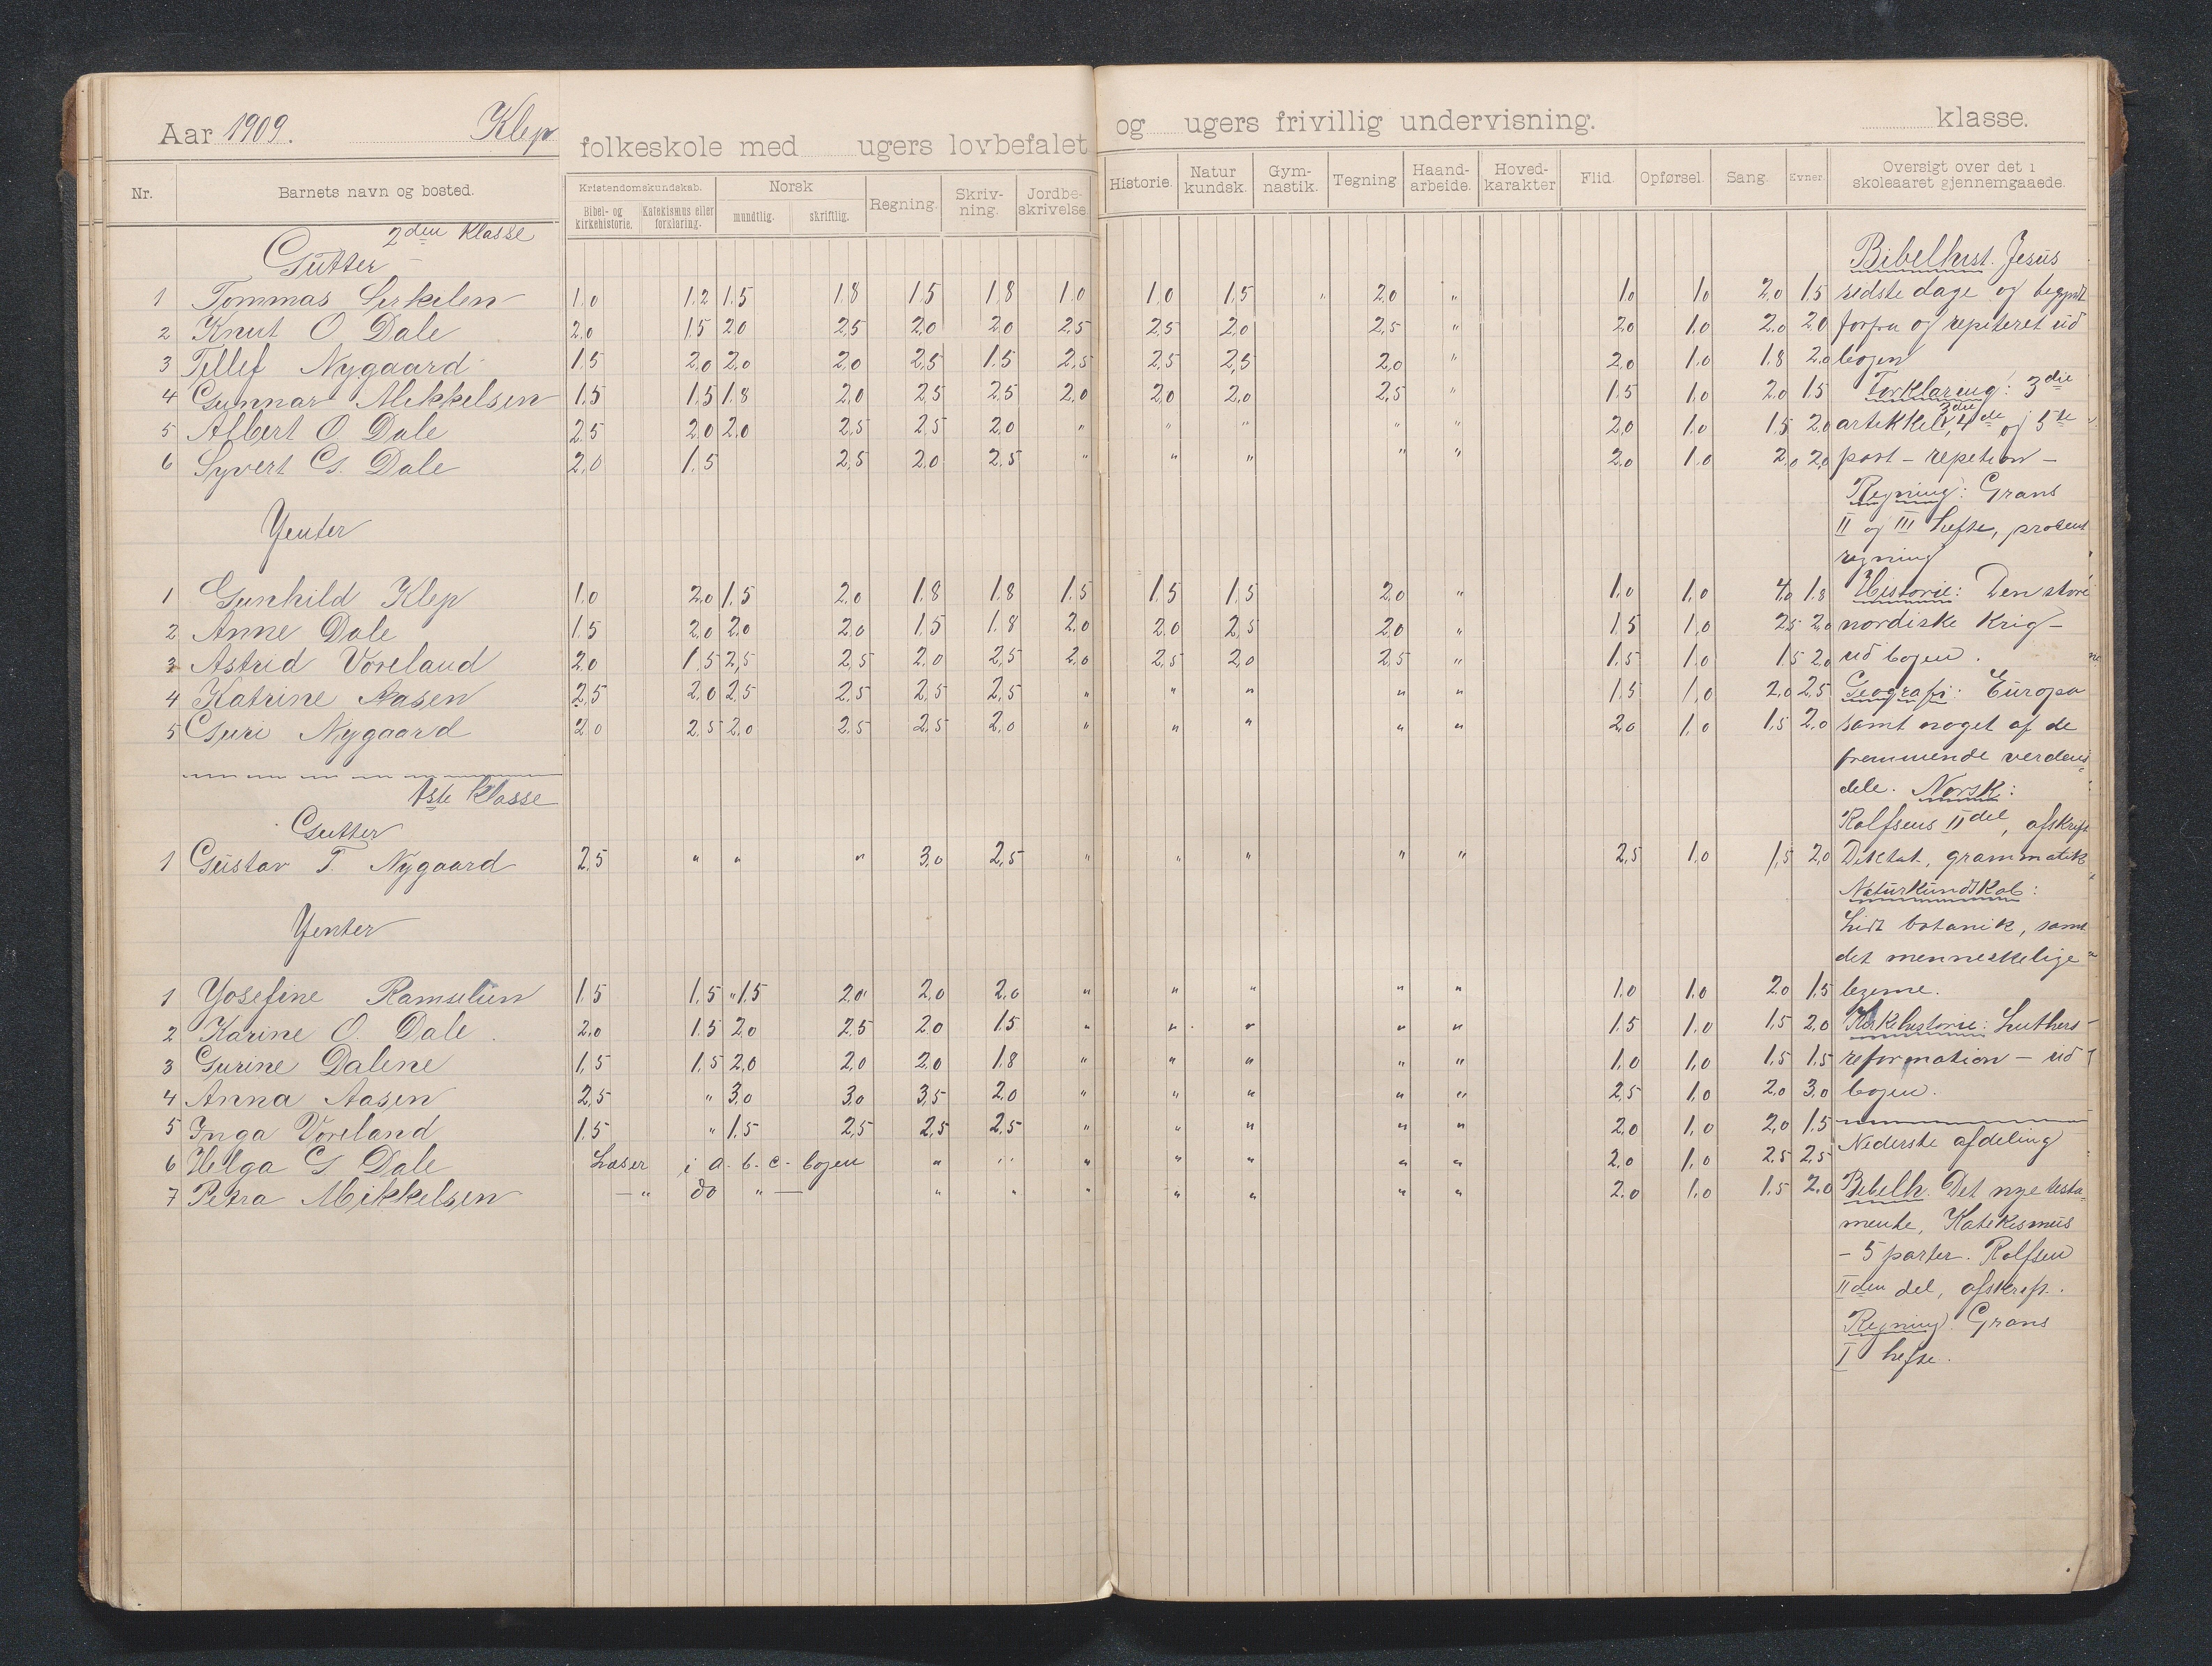 Aar 1909. Klep folkeskole med ugers lovbefalet og ugers frivillig undervisning. klasse.
Nr. Barnets navn og bosted. Kristendomskundskab. Bibel- og kirkehistorie. Katekismus eller forklaring. Norsk mundtlig. skriftlig. Regning. Skriv-ning. Jordbe-skrivelse. Historie. Natur kundsk. Gym-nastik. Tegning Haand-arbeide. Hoved-karakter Flid. Opførsel. Sang. Evner. Oversigt over det i skoleaaret gjennemgaaede.
2den Klasse
Gutter
1 Tommas Sirkelen 1.0 1.2 1.5 1.8 1.5 1.8 1.0 1.0 1.5 " 2.0 " 1.0 1.0 2.0 1.5
2 Knut O Dale 2.0 1.5 2.0 2.5 2.0 2.0 2.5 2.5 2.0 2.5 " 2.0 1.0 2.0 2.0
3 Tellef Nygaard 1.5 2.0 2.0 2.0 2.5 1.5 2.5 2.5 2.5 2.0 " 2.0 1.0 1.8 2.0
4 Gunnar Mikkelsen 1.5 1.5 1.8 2.0 2.5 2.5 2.0 2.0 2.0 2.5 " 1.5 1.0 2.0 1.5
5 Albert O Dale 2.5 2.0 2.0 2.5 2.5 2.0 " " " " " 2.0 1.0 1.5 2.0
6 Syvert G. Dale 2.0 1.5 2.5 2.0 2.5 " " " " " 2.0 1.0 2.0 2.0
Yenter
1 Gunhild Klep 1.0 2.0 1.5 2.0 1.8 1.8 1.5 1.5 1.5 2.0 " 1.0 1.0 4.0 1.8
2 Anne Dale 1.5 2.0 2.0 2.0 1.5 1.8 2.0 2.0 2.5 2.0 " 1.5 1.0 2.5 2.0
3 Astrid Voreland 2.0 1.5 2.5 2.5 2.0 2.5 2.0 2.5 2.0 2.5 " 1.5 1.0 1.5 2.0
4 Katrine Aasen 2.5 2.0 2.5 2.5 2.5 2.5 " " " " " 1.5 1.0 2.0 2.5
5 Guri Nygaard 2.0 2.5 2.0 2.5 2.5 2.0 " " " " " 2.0 1.0 1.5 2.0
1ste Klasse
Gutter
1 Gustav T. Nygaard 2.5 " " " 3.0 2.5 " " " " " 2.5 1.0 1.5 2.0
Yenter
1 Yosefine Ramselien 1.5 1.5 " 1.5 2.0 " 2.0 2.0 " " " " " 1.0 1.0 2.0 1.5
2 Karine O. Dale 2.0 1.5 2.0 2.5 2.0 1.5 " " " " " 1.5 1.0 1.5 2.0
3 Gurine Dalene 1.5 1.5 2.0 2.0 2.0 1.8 " " " " " 1.0 1.0 1.5 1.5
4 Anna Aasen 2.5 " 3.0 3.0 3.5 2.0 " " " " " 2.5 1.0 2.0 3.0
5 Inga Voreland 1.5 " 1.5 2.5 2.5 2.5 " " " " " 2.0 1.0 2.0 1.5
6 Helga G Dale Læser i a-b-c-bogen " " " " " " " 2.0 1.0 2.5 2.5
7 Petra Mikkelsen — " do " — " " " " " " " 2.0 1.0 1.5 2.0
Bibelhist. Jesus
sidste dage og begyndt
forfra og repiteret ud
bogen
Forklareng: 3die
artikkel, 3die 4de og 5te
part – repetion –
Regning: Grans
II og III hefte, procent
regning
Historie: Den store
nordiske Krig –
ud bogen.
Geografi: Europa
samt noget af de
fremmende verdens
dele. Norsk:
Rolfsens II del, afskrift
Diktat, grammatik
Naturkundskab:
Lidt botanik, samt
det menneskelige
legeme.
Kirkehistorie: Luthers
reformation – ud
bogen.
Nederste afdeling
Bibelh. Det nye testa-
mente, Katekismus
– 5 parter. Rolfsen
IIden del, afskrift.
Regning. Grans
I hefte.